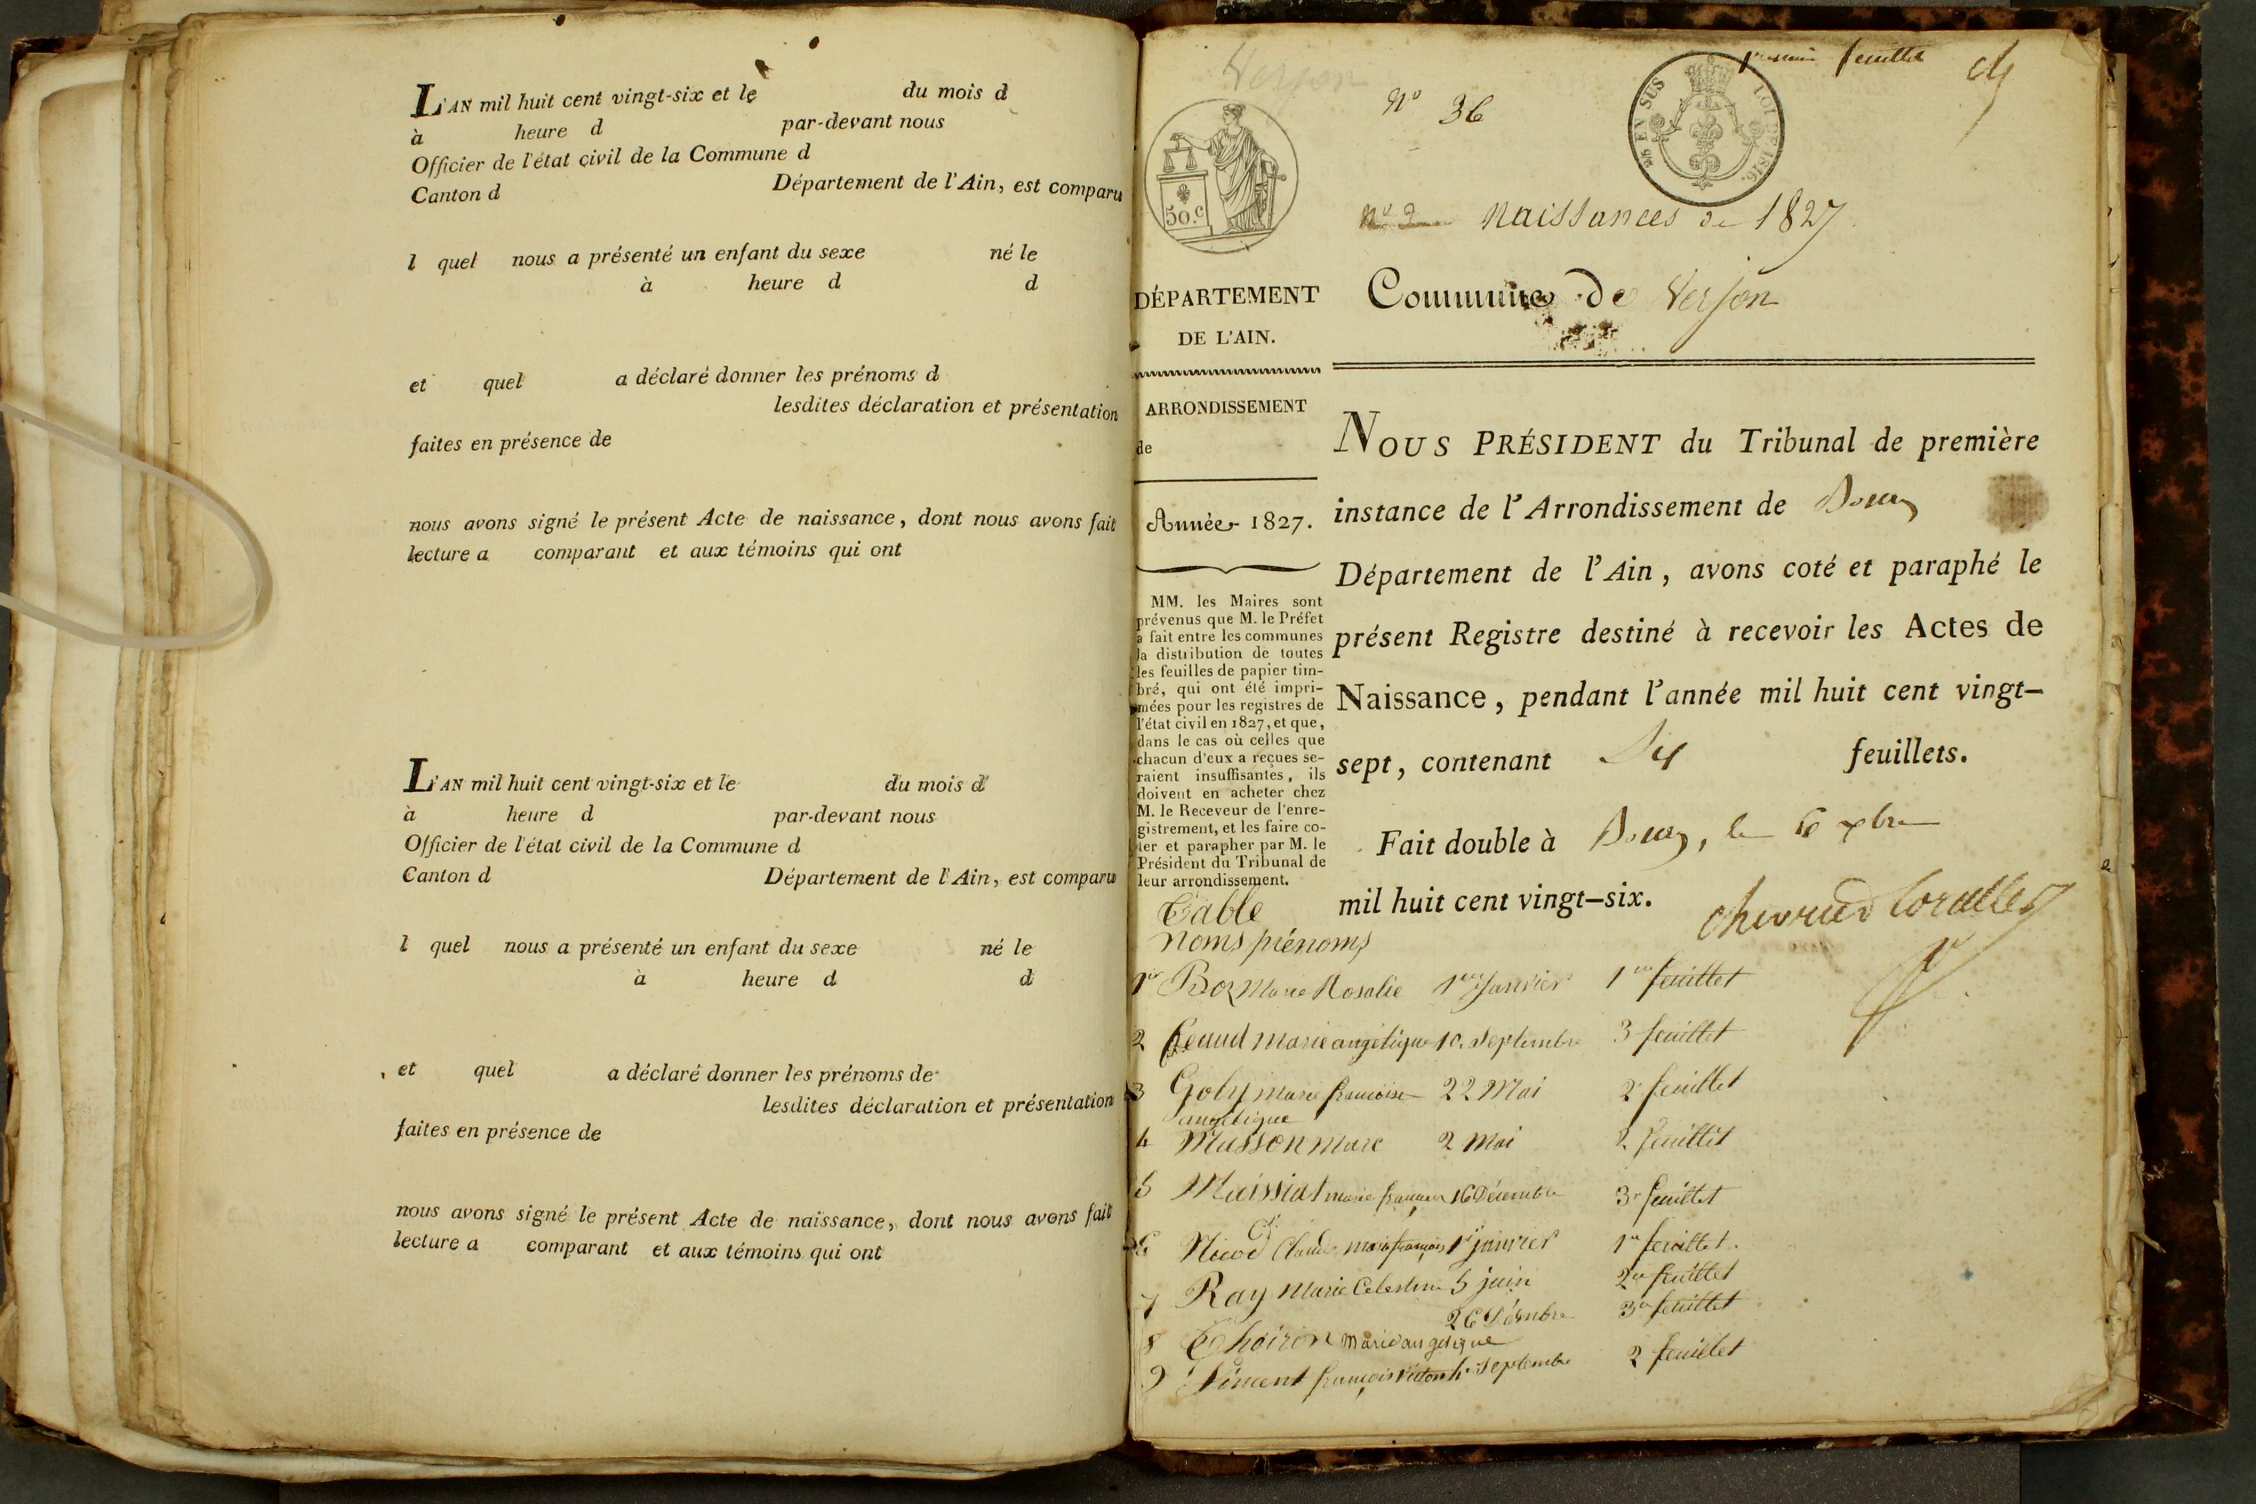 L'AN mil huit cent vingt-six et le du mois d
à heure d par-devant nous
Officier de l'état civil de la Commune d
Canton d Département de l'Ain, est comparu
l quel nous a présenté un enfant du sexe né le
à heure d d
et quel a déclaré donner les prénoms d
lesdites déclaration et présentation
faites en présence de
nous avons signé le présent Acte de naissance, dont nous avons fait
lecture a comparant et aux témoins qui ont
L'AN mil huit cent vingt-six et le du mois d
à heure d par-devant nous
Officier de l'état civil de la Commune d
Canton d Département de l'Ain, est comparu
l quel nous a présenté un enfant du sexe né le
à heure d d
et quel a déclaré donner les prénoms de
lesdites déclaration et présentation
faites en présence de
nous avons signé le présent Acte de naissance, dont nous avons fait
lecture a comparant et aux témoins qui ont
Verjon
premier feuillet
N° 36
EN SUS LOI DE 1816.
50.c
Naissances de 1827
Commune de Verjon
DÉPARTEMENT
DE L'AIN.
ARRONDISSEMENT
de
Année 1827.
MM. les Maires sont
prévenus que M. le Préfet
a fait entre les communes
la distribution de toutes
les feuilles de papier tim-
bré, qui ont été impri-
mées pour les registres de
l'état civil en 1827, et que,
dans le cas où celles que
chacun d'eux a reçues se-
raient insuffisantes, ils
doivent en acheter chez
M. le Receveur de l'enre-
gistrement, et les faire co-
ter et parapher par M. le
Président du Tribunal de
leur arrondissement.
NOUS PRÉSIDENT du Tribunal de première
instance de l'Arrondissement de Bourg
Département de l'Ain, avons coté et paraphé le
présent Registre destiné à recevoir les Actes de
Naissance, pendant l'année mil huit cent vingt-
sept, contenant feuillets.
Fait double à Bourg, le xbre
mil huit cent vingt-six.
Table
Noms prénoms
1er Boz Marie Rosalie 1er Janvier 1er feuillet
2 Marie angélique 10 Septembre 3 feuillet
3 Goly marie francoise 22 Mai 2e feuillet
angélique
4 Masson marc 2 Mai 2 feuillet
5 Maissiat marie 16 Décembre 3e feuillet
6 Nicod Claude marie françois 1er janvier 1er feuillet.
7 Ray Marie Celestine 5 juin 2e feuillet
8 Thoiron Marie angelique 26 3e feuillet
9 Vincent françois Victor Septembre 2 feuillet